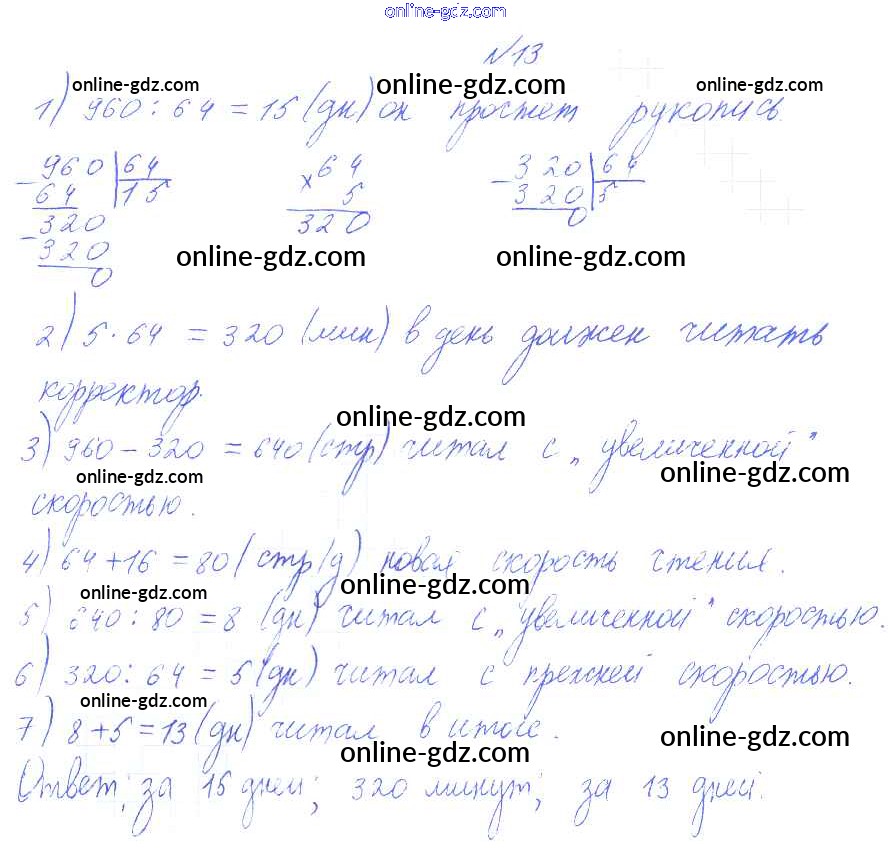 online-gdz.com
№13
online-gdz.com online-gdz.com online-gdz.com
1) 960 : 64 = 15 (дн) он прочтет рукопись.
960 | 64
64 | 15
320
320
0
× 64
5
320
320 | 64
320 | 5
0
online-gdz.com online-gdz.com
2) 5 · 64 = 320 (мин) в день должен читать
корректор.
online-gdz.com
3) 960 – 320 = 640 (стр) читал с „увеличенной"
online-gdz.com online-gdz.com
скоростью.
4) 64 + 16 = 80 (стр/д) новая скорость чтения.
online-gdz.com online-gdz.com online-gdz.com
5) 640 : 80 = 8 (дн) читал с „увеличенной" скоростью.
6) 320 : 64 = 5 (дн) читал с прежней скоростью.
online-gdz.com
7) 8 + 5 = 13 (дн) читал в итоге.
online-gdz.com online-gdz.com
Ответ: за 15 дней; 320 минут; за 13 дней.